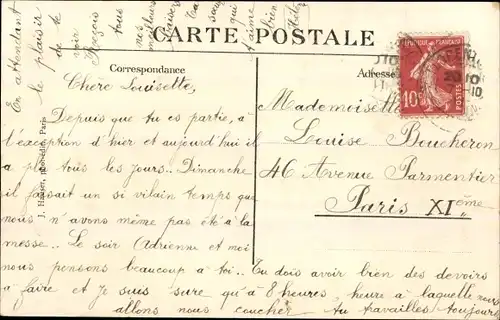 CARTE POSTALE
Correspondance
Adresse
RÉPUBLIQUE FRANÇAISE
10
POSTES
Chère Louisette,
Depuis que tu es partie, à
l'exception d'hier et aujourd'hui il
a plu tous les jours.. Dimanche
il faisait un si vilain temps que
nous n'avons même pas été à la
messe.. Le soir Adrienne et moi
nous pensons beaucoup à toi.. Tu dois avoir bien des devoirs
à faire et je suis sure qu'à 8 heures, heure à laquelle nous
allons nous coucher tu travailles toujours
En attendant
le plaisir
de te
voir
Reçois
tous
nos
meilleurs
baisers
Ta
qui
t'aime
bien
Mademoiselle
Louise Boucheron
46 Avenue Parmentier
Paris XIème
J. Paris